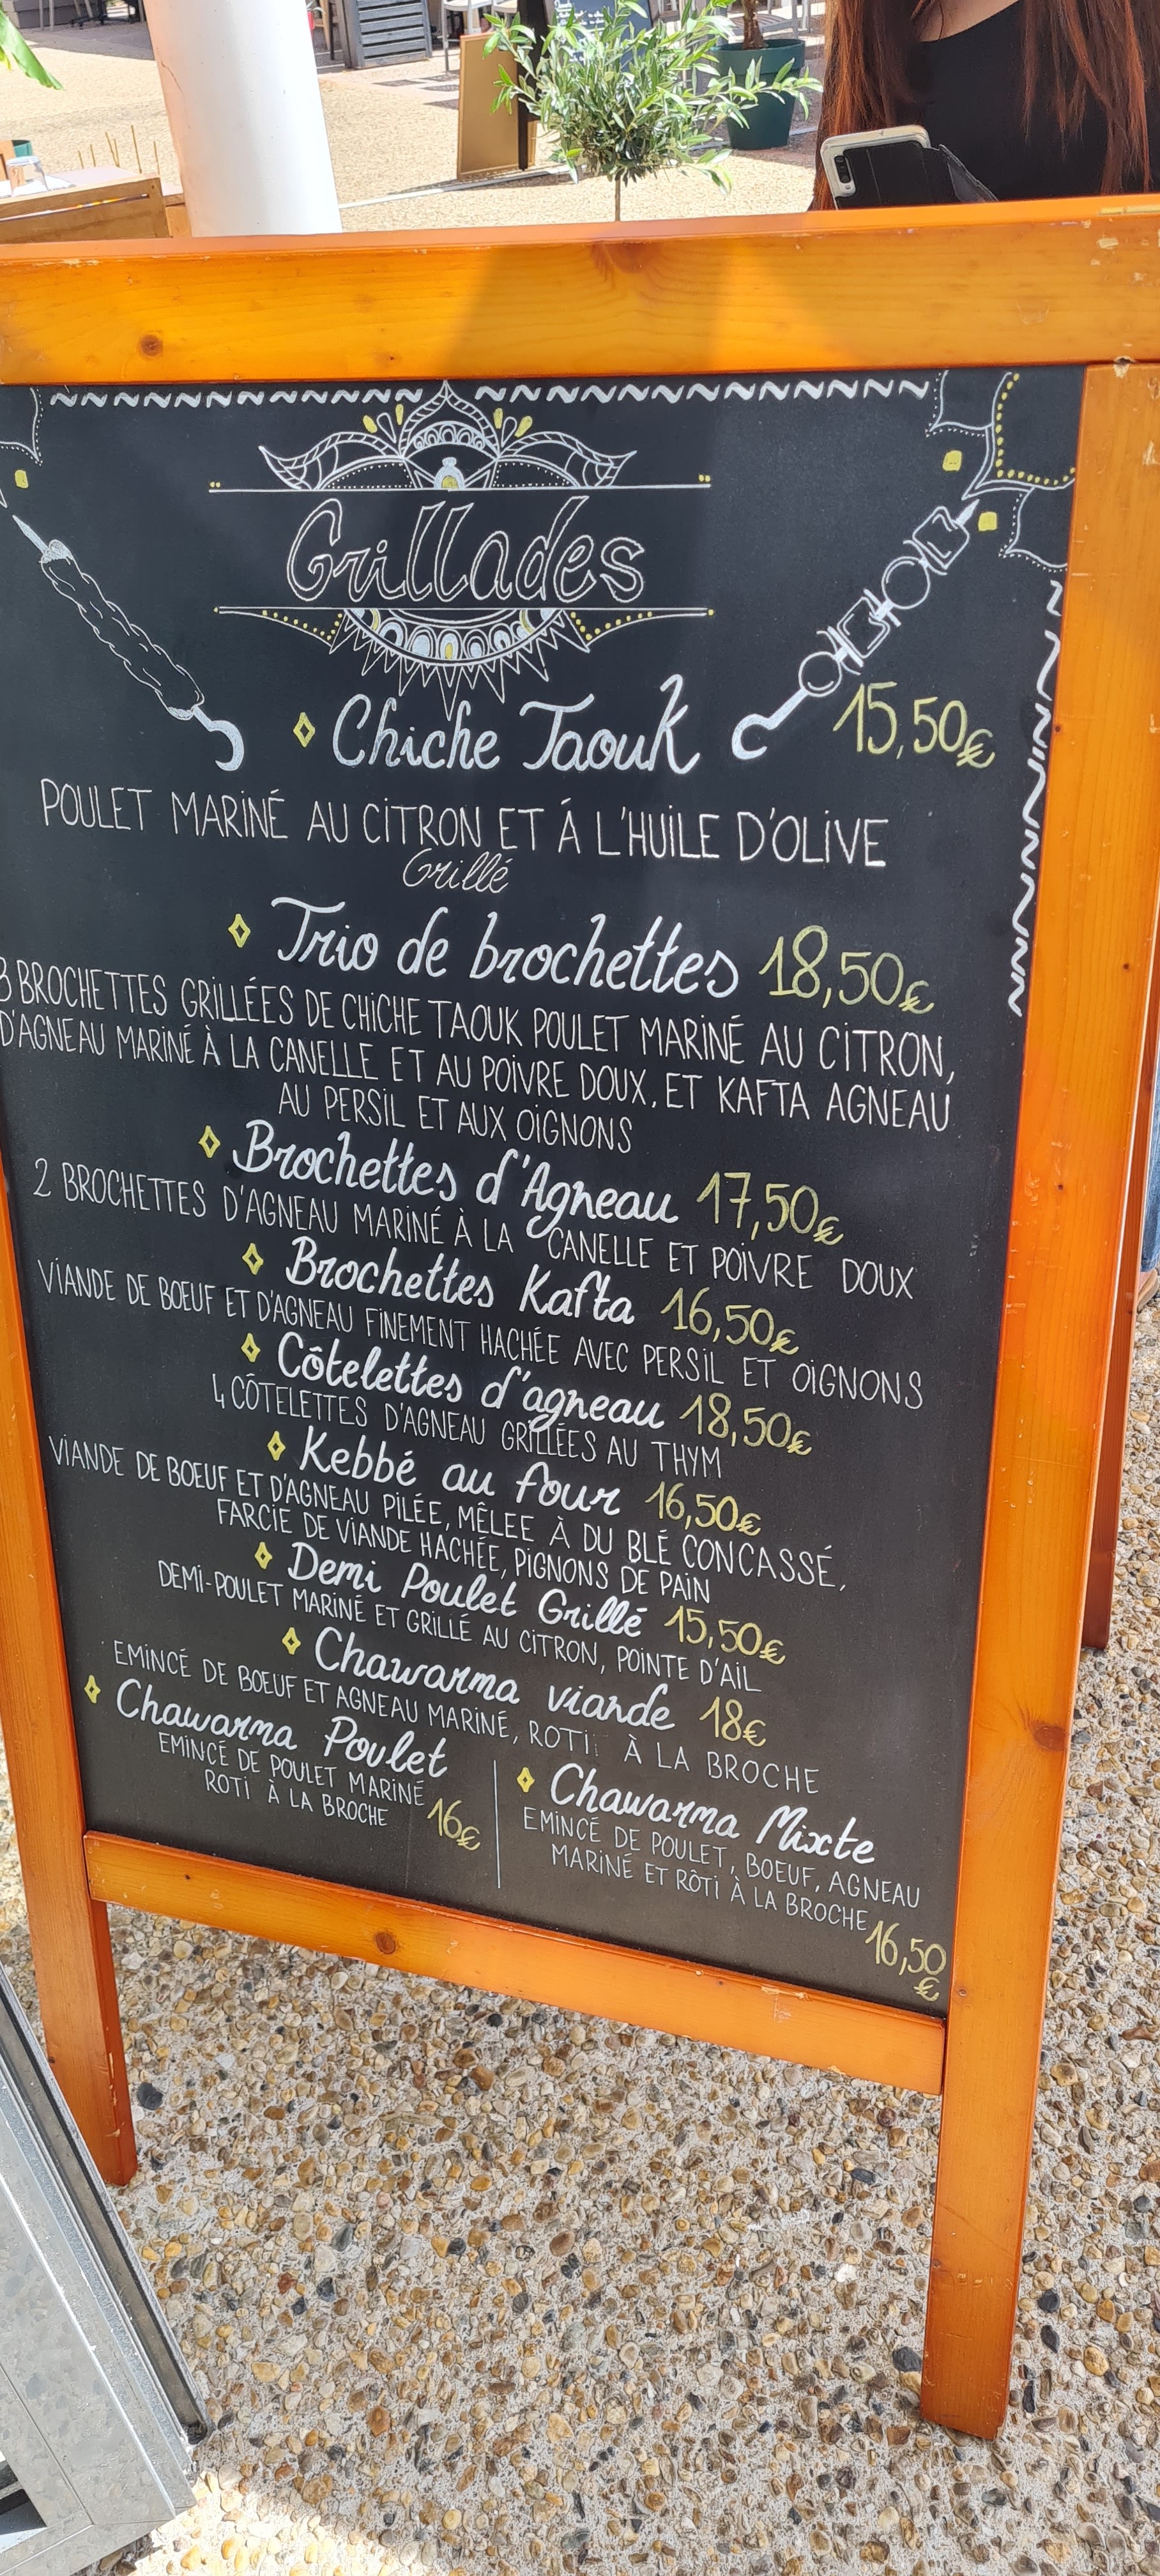 Grillades
Chiche Taouk 15,50€
POULET MARINÉ AU CITRON ET Á L'HUILE D'OLIVE
Grillé
Trio de brochettes 18,50€
3 BROCHETTES GRILLÉES DE CHICHE TAOUK POULET MARINÉ AU CITRON,
D'AGNEAU MARINÉ À LA CANELLE ET AU POIVRE DOUX, ET KAFTA AGNEAU
AU PERSIL ET AUX OIGNONS
Brochettes d'Agneau 17,50€
2 BROCHETTES D'AGNEAU MARINÉ À LA CANELLE ET POIVRE DOUX
Brochettes Kafta 16,50€
VIANDE DE BOEUF ET D'AGNEAU FINEMENT HACHÉE AVEC PERSIL ET OIGNONS
Côtelettes d'agneau 18,50€
4 CÔTELETTES D'AGNEAU GRILLÉES AU THYM
Kebbé au four 16,50€
VIANDE DE BOEUF ET D'AGNEAU PILÉE, MÊLEE À DU BLÉ CONCASSÉ,
FARCIE DE VIANDE HACHÉE, PIGNONS DE PAIN
Demi Poulet Grillé 15,50€
DEMI-POULET MARINÉ ET GRILLÉ AU CITRON, POINTE D'AIL
Chawarma viande 18€
EMINCÉ DE BOEUF ET AGNEAU MARINÉ, ROTI À LA BROCHE
Chawarma Poulet
EMINCÉ DE POULET MARINÉ
ROTI À LA BROCHE 16€
Chawarma Mixte
EMINCÉ DE POULET, BOEUF, AGNEAU
MARINÉ ET RÔTI À LA BROCHE 16,50
€